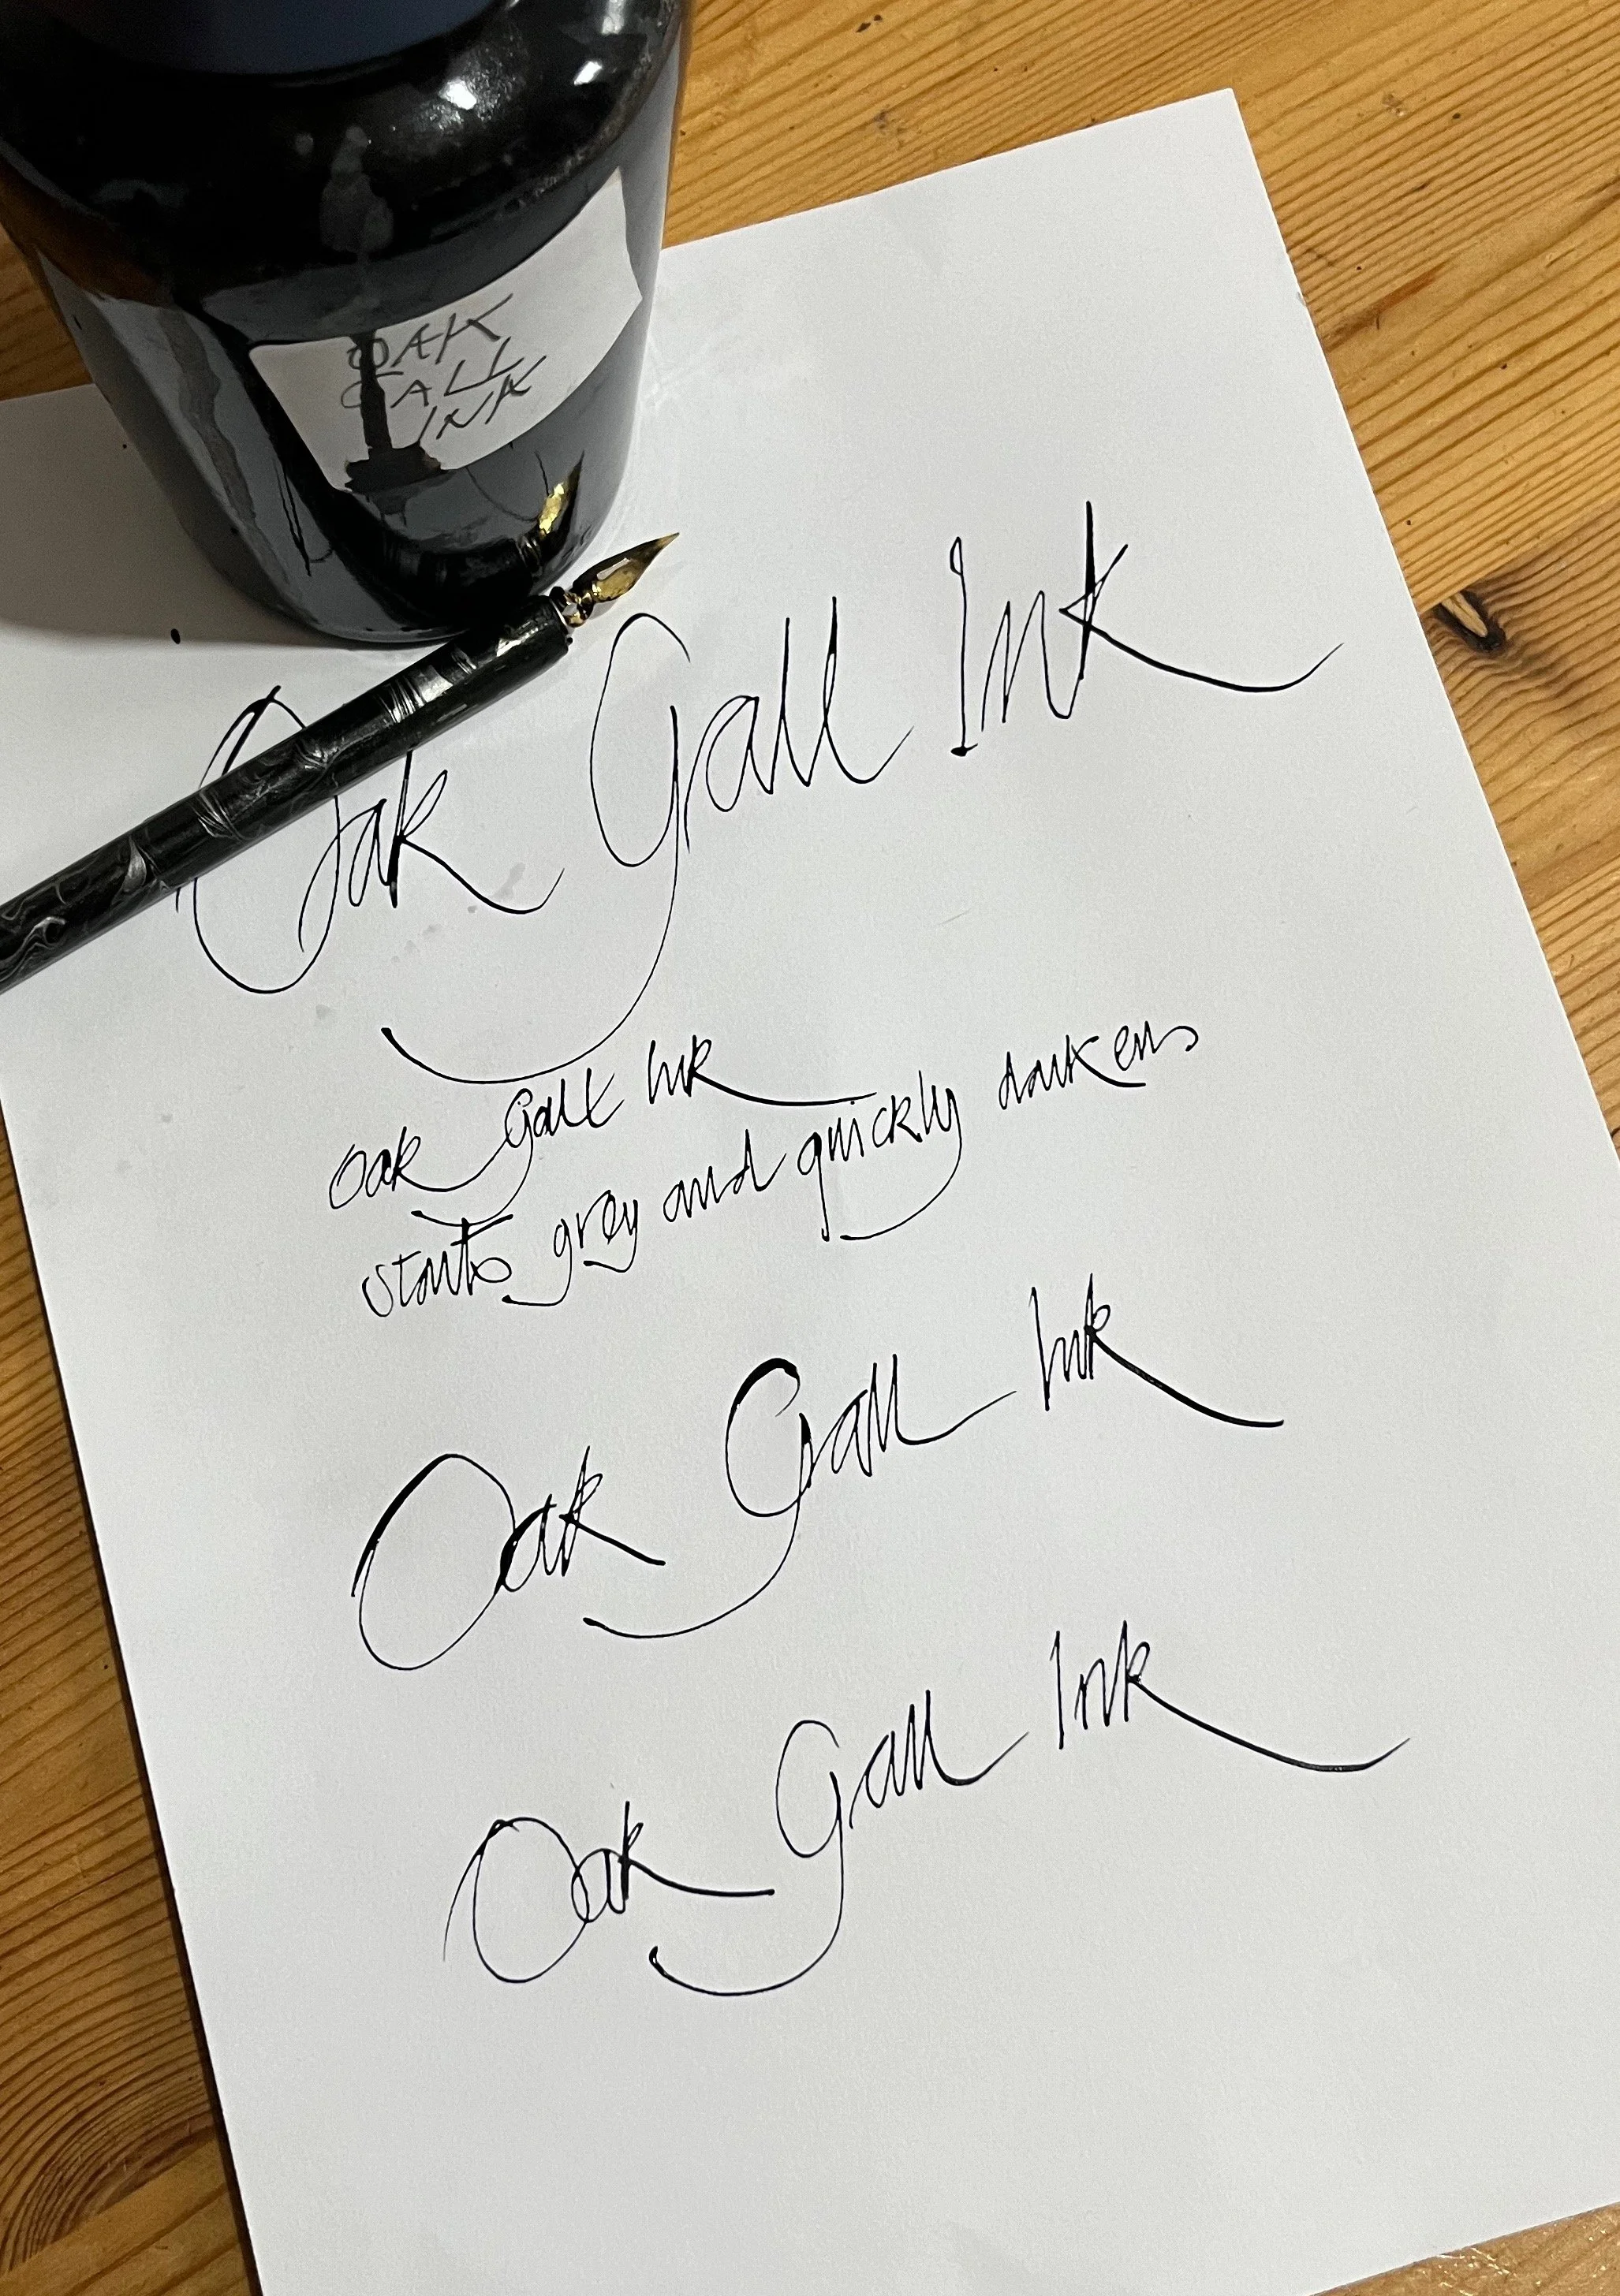 OAK
GALL
INK
Oak Gall Ink
Oak Gall Ink
starts grey and quickly darkens
Oak Gall Ink
Oak Gall Ink